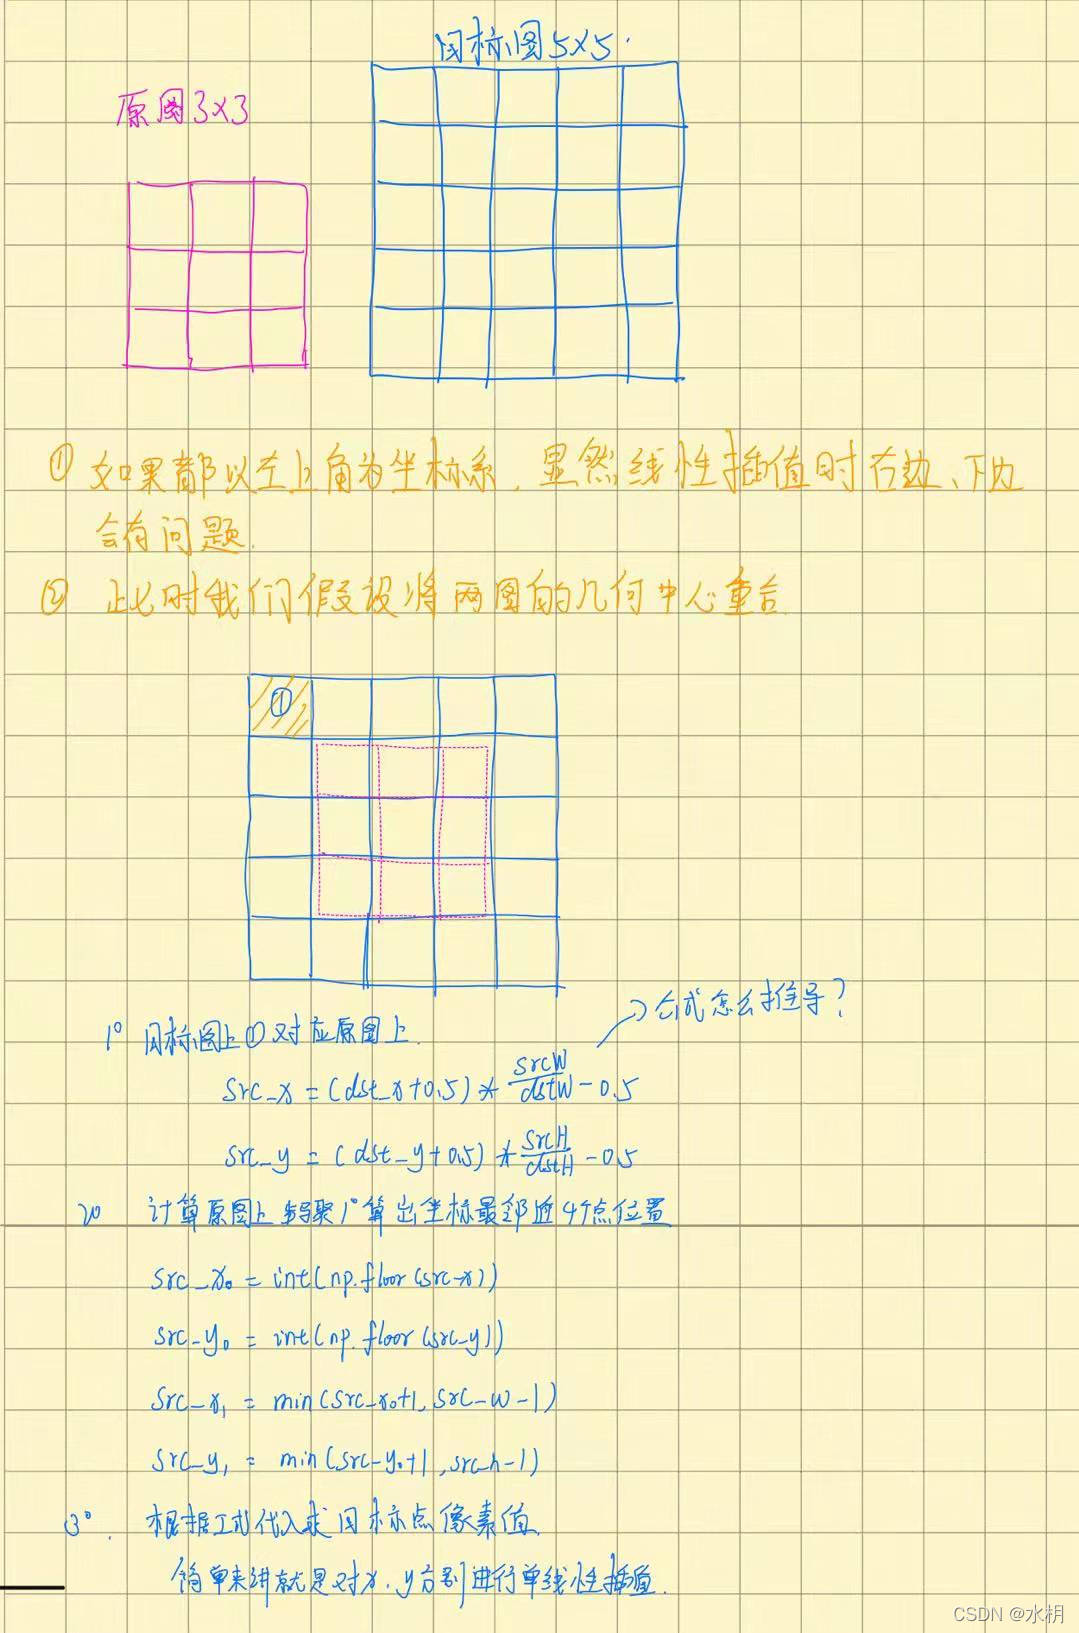 目标图5×5
原图3×3
① 如果都以左上角为坐标系，显然线性插值时右边、下边
会有问题.
② 此时我们假设将两图的几何中心重合.
①
→公式怎么推导？
1° 目标图上①对应原图上.
src_x = (dst_x+0.5) * srcW/dstW - 0.5
src_y = (dst_y+0.5) * srcH/dstH - 0.5
2° 计算原图上步骤1°算出坐标最邻近4个点位置
src_x₀ = int(np.floor(src-x))
src-y₀ = int(np.floor(src-y))
src-x₁ = min(src-x₀+1, src-w-1)
src-y₁ = min(src-y₀+1, src-h-1)
3°. 根据工式代入求目标点像素值.
简单来讲就是对x、y分别进行单线性插值.
CSDN @水枂